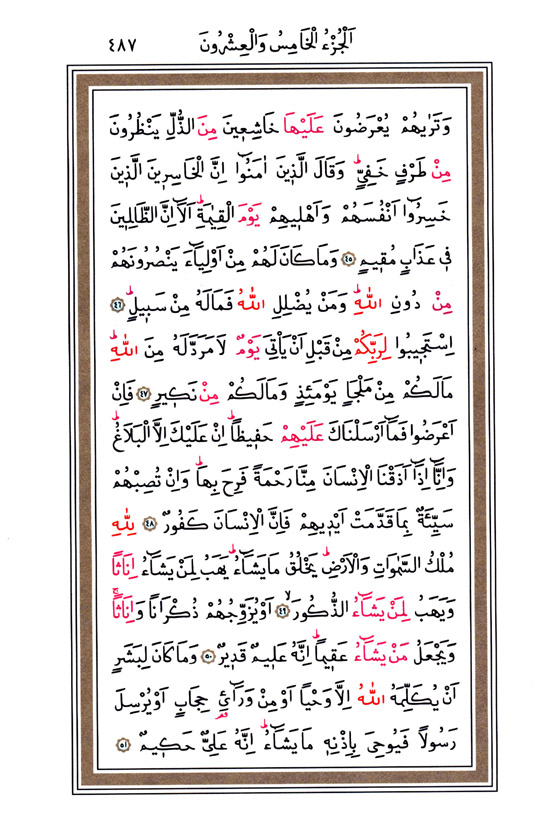 اَلْجُزْءُ الْخَامِسُ وَالْعِشْرُونَ ٤٨٧
وَتَرٰيهُمْ يُعْرَضُونَ عَلَيْهَا خَاشِع۪ينَ مِنَ الذُّلِّ يَنْظُرُونَ
مِنْ طَرْفٍ خَفِيٍّۜ وَقَالَ الَّذ۪ينَ اٰمَنُٓوا اِنَّ الْخَاسِر۪ينَ الَّذ۪ينَ
خَسِرُٓوا اَنْفُسَهُمْ وَاَهْل۪يهِمْ يَوْمَ الْقِيٰمَةِۜ اَلَٓا اِنَّ الظَّالِم۪ينَ
ف۪ي عَذَابٍ مُق۪يمٍ ﴿٤٥﴾ وَمَا كَانَ لَهُمْ مِنْ اَوْلِيَٓاءَ يَنْصُرُونَهُمْ
مِنْ دُونِ اللّٰهِۜ وَمَنْ يُضْلِلِ اللّٰهُ فَمَا لَهُ مِنْ سَب۪يلٍۜ ﴿٤٦﴾
اِسْتَج۪يبُوا لِرَبِّكُمْ مِنْ قَبْلِ اَنْ يَأْتِيَ يَوْمٌ لَا مَرَدَّ لَهُ مِنَ اللّٰهِۜ
مَا لَكُمْ مِنْ مَلْجَأٍ يَوْمَئِذٍ وَمَا لَكُمْ مِنْ نَك۪يرٍ ﴿٤٧﴾ فَاِنْ
اَعْرَضُوا فَمَٓا اَرْسَلْنَاكَ عَلَيْهِمْ حَف۪يظًاۜ اِنْ عَلَيْكَ اِلَّا الْبَلَاغُۜ
وَاِنَّٓا اِذَٓا اَذَقْنَا الْاِنْسَانَ مِنَّا رَحْمَةً فَرِحَ بِهَاۚ وَاِنْ تُصِبْهُمْ
سَيِّئَةٌ بِمَا قَدَّمَتْ اَيْد۪يهِمْ فَاِنَّ الْاِنْسَانَ كَفُورٌ ﴿٤٨﴾ لِلّٰهِ
مُلْكُ السَّمٰوَاتِ وَالْاَرْضِۜ يَخْلُقُ مَا يَشَٓاءُۜ يَهَبُ لِمَنْ يَشَٓاءُ اِنَاثًا
وَيَهَبُ لِمَنْ يَشَٓاءُ الذُّكُورَۙ ﴿٤٩﴾ اَوْ يُزَوِّجُهُمْ ذُكْرَانًا وَاِنَاثًاۚ
وَيَجْعَلُ مَنْ يَشَٓاءُ عَق۪يمًاۜ اِنَّهُ عَل۪يمٌ قَد۪يرٌ ﴿٥٠﴾ وَمَا كَانَ لِبَشَرٍ
اَنْ يُكَلِّمَهُ اللّٰهُ اِلَّا وَحْيًا اَوْ مِنْ وَرَٓائِ۬ حِجَابٍ اَوْ يُرْسِلَ
رَسُولًا فَيُوحِيَ بِاِذْنِه۪ مَا يَشَٓاءُۜ اِنَّهُ عَلِيٌّ حَك۪يمٌ ﴿٥١﴾